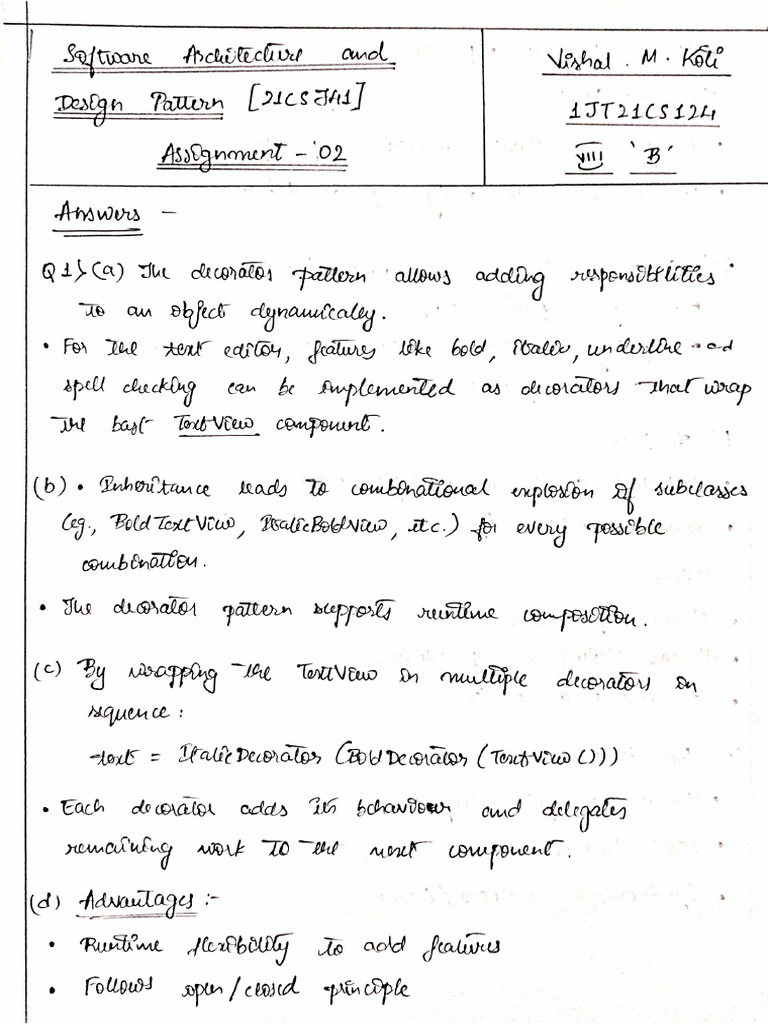 Software Architecture and
Design Pattern [21CSJ41]
Assignment - 02
Vishal . M. Koli
1JT21CS124
VIII 'B'
Answers -
Q1) (a) The decorator pattern allows adding responsibilities
to an object dynamically.
• For the text editor, features like bold, italic, underline and
spell checking can be implemented as decorators that wrap
the base TextView component.
(b) • Inheritance leads to combinational explosion of subclasses
(eg., BoldTextView, ItalicBoldView, etc.) for every possible
combination.
• The decorator pattern supports runtime composition.
(c) By wrapping the TextView in multiple decorators in
sequence :
text = ItalicDecorator (BoldDecorator (TextView ()))
• Each decorator adds its behaviour and delegates
remaining work to the next component.
(d) Advantages :-
• Runtime flexibility to add features
• Follows open/closed principle